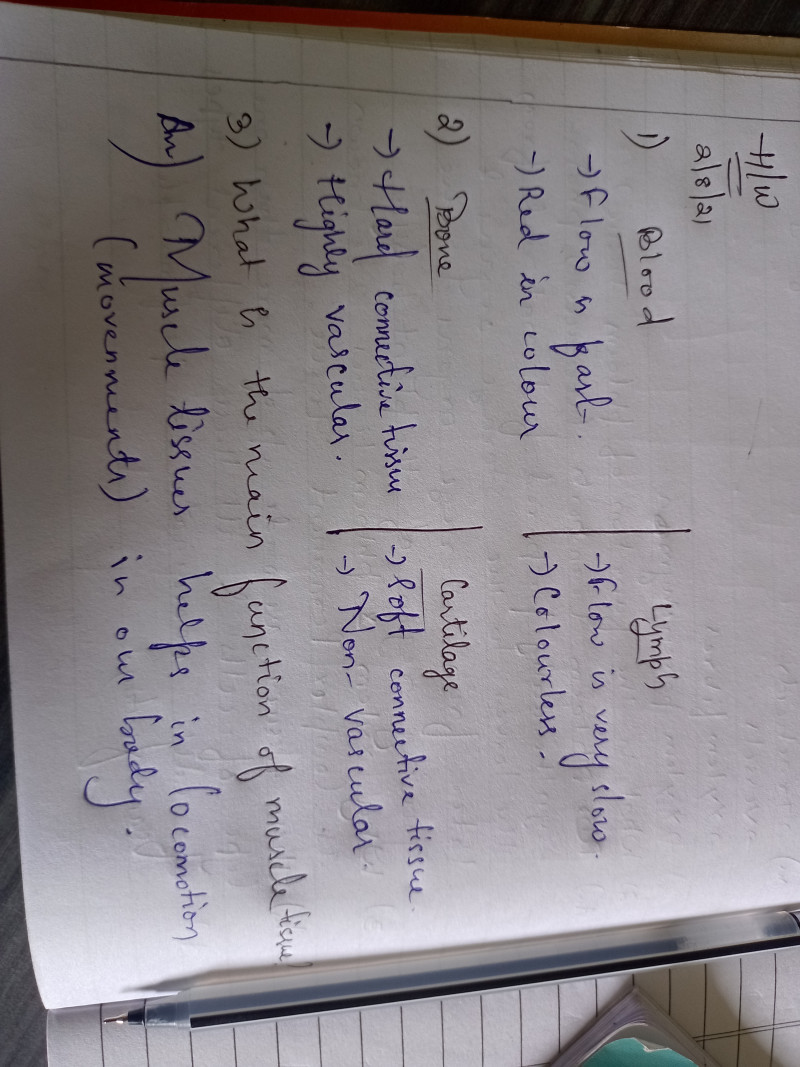 H/W
2/8/21
1) Blood Lymph
→ Flow is fast. → Flow is very slow.
→ Red in colour → Colourless.
2) Bone Cartilage
→ Hard connective tissue → Soft connective tissue.
→ Highly vascular. → Non-vascular.
3) What is the main function of muscle tissue?
Ans) Muscle tissues helps in locomotion
(movenments) in our body.